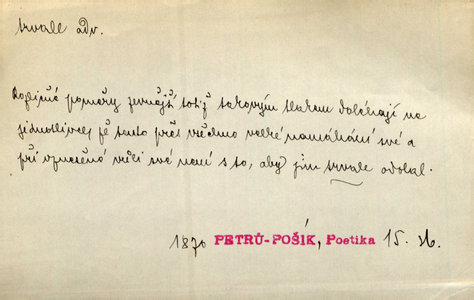 trvale adv.
Rozličné poměry zevnější totiž takovým tlakem doléhají na
jednotlivce, že tento přes všechno volké namáhání své a
při vší své není s to, aby jim trvale odolal.
1870 PETRŮ-POŠÍK, Poetika 15. 36.